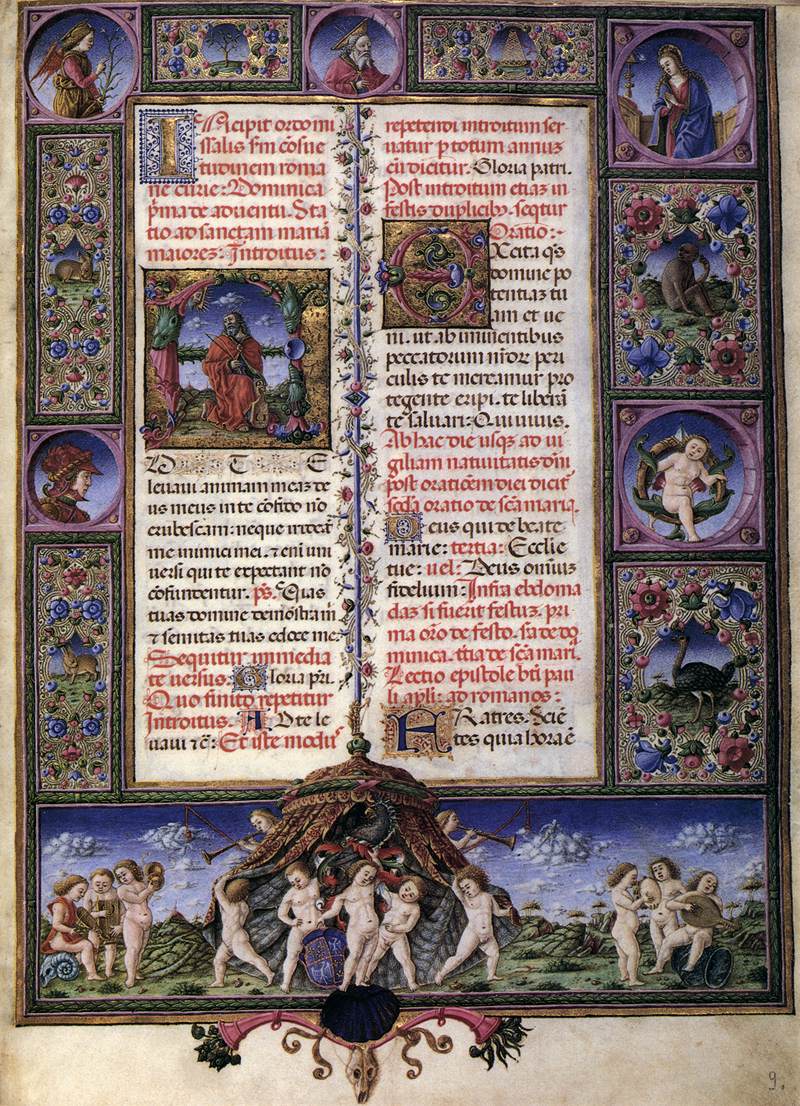 Incipit ordo mi
ssalis s'm cōsue
tudinem roma
ne curie: Dominica
p'ma de adventu. Sta
tio ad sanctam mariā
maiorez: Introitus:
AD TE
levavi animam meaz de
us meus in te cōfido nō
erubescam: neque irrideāt
me inimici mei. ⁊ eniɜ uni
versi qui te expectant nō
cōfundentur. ps. Vias
tuas domine demōstra m̄
⁊ semitas tuas edoce me.
Sequitur immedia
te versus. Gloria pr̄i.
Quo finito repetitur
Introitus. AD te le
vavi ⁊c̄: Et iste modus
repetendi introitum ser
vatur p totum annuz
cū dicitur. Gloria patri.
Post introitum etiaz in
festis duplicibꝫ. seqtur
Oratio:
EXcita q̄s
domine po
tentiaz tu
am et ve
ni. ut ab iminentibus
peccatorum nr̄or peri
culis te mereamur pro
tegente eripi. te liberāt
te salvari: Qui vivis.
Ab hac die usqꝫ ad vi
giliam nativitatis dn̄i
post orationem diei dicit'
scd̄a oratio de scā maria.
Deus qui de beate
marie: tertia: Ecclie
tue: vel: Deus omniuz
fidelium: Infra ebdoma
daz si fuerit festuz. pri
ma orō de festo. s'a de do
minica. t'tia de scā mari.
Lectio epistole bt̄i pau
li apl'i: ad romanos:
FRatres. Sciē
tes quia hora ē
9.